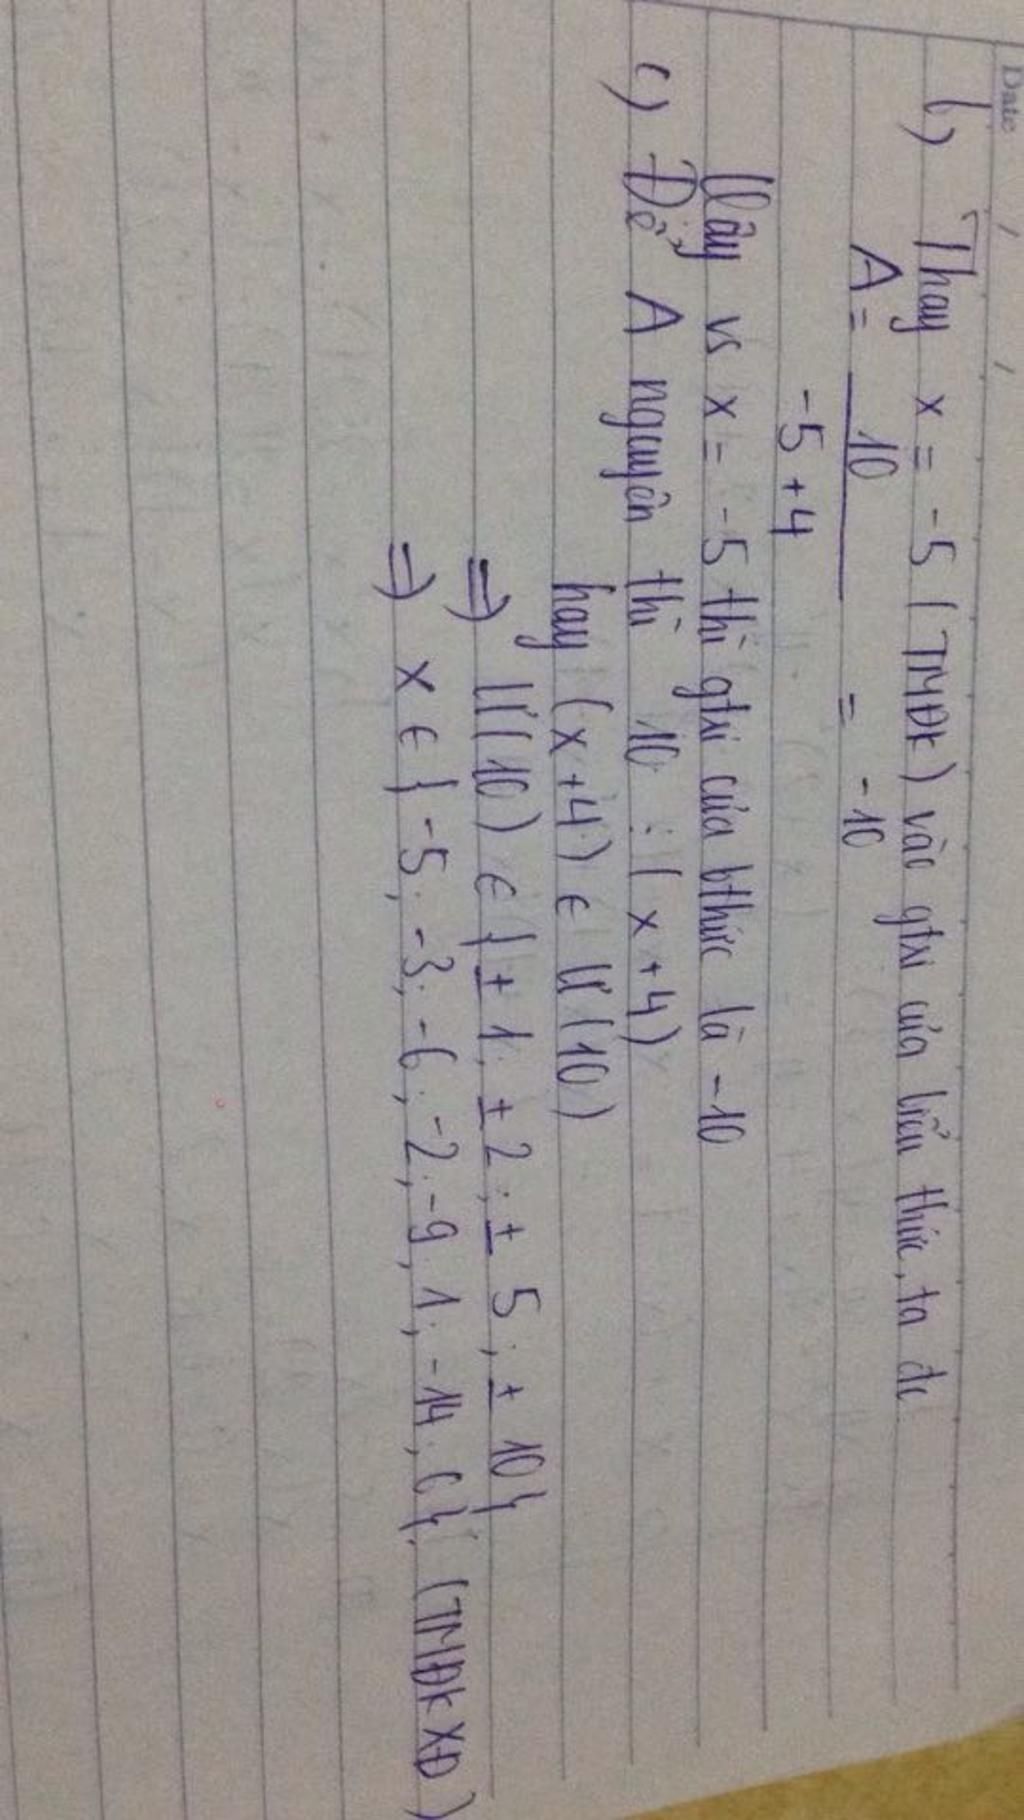 Date / /
b) Thay x = -5 (TMĐK) vào gtrị của biểu thức, ta đc
A = 10 / -5 + 4 = -10
Vậy vs x = -5 thì gtrị của bthức là -10
c) Để A nguyên thì 10 ⋮ (x + 4)
hay (x + 4) ∈ Ư(10)
=) Ư(10) ∈ { ± 1; ± 2; ± 5; ± 10}
=) x ∈ { -5; -3; -6; -2; -9; 1; -14; 6} (TMĐKXĐ)